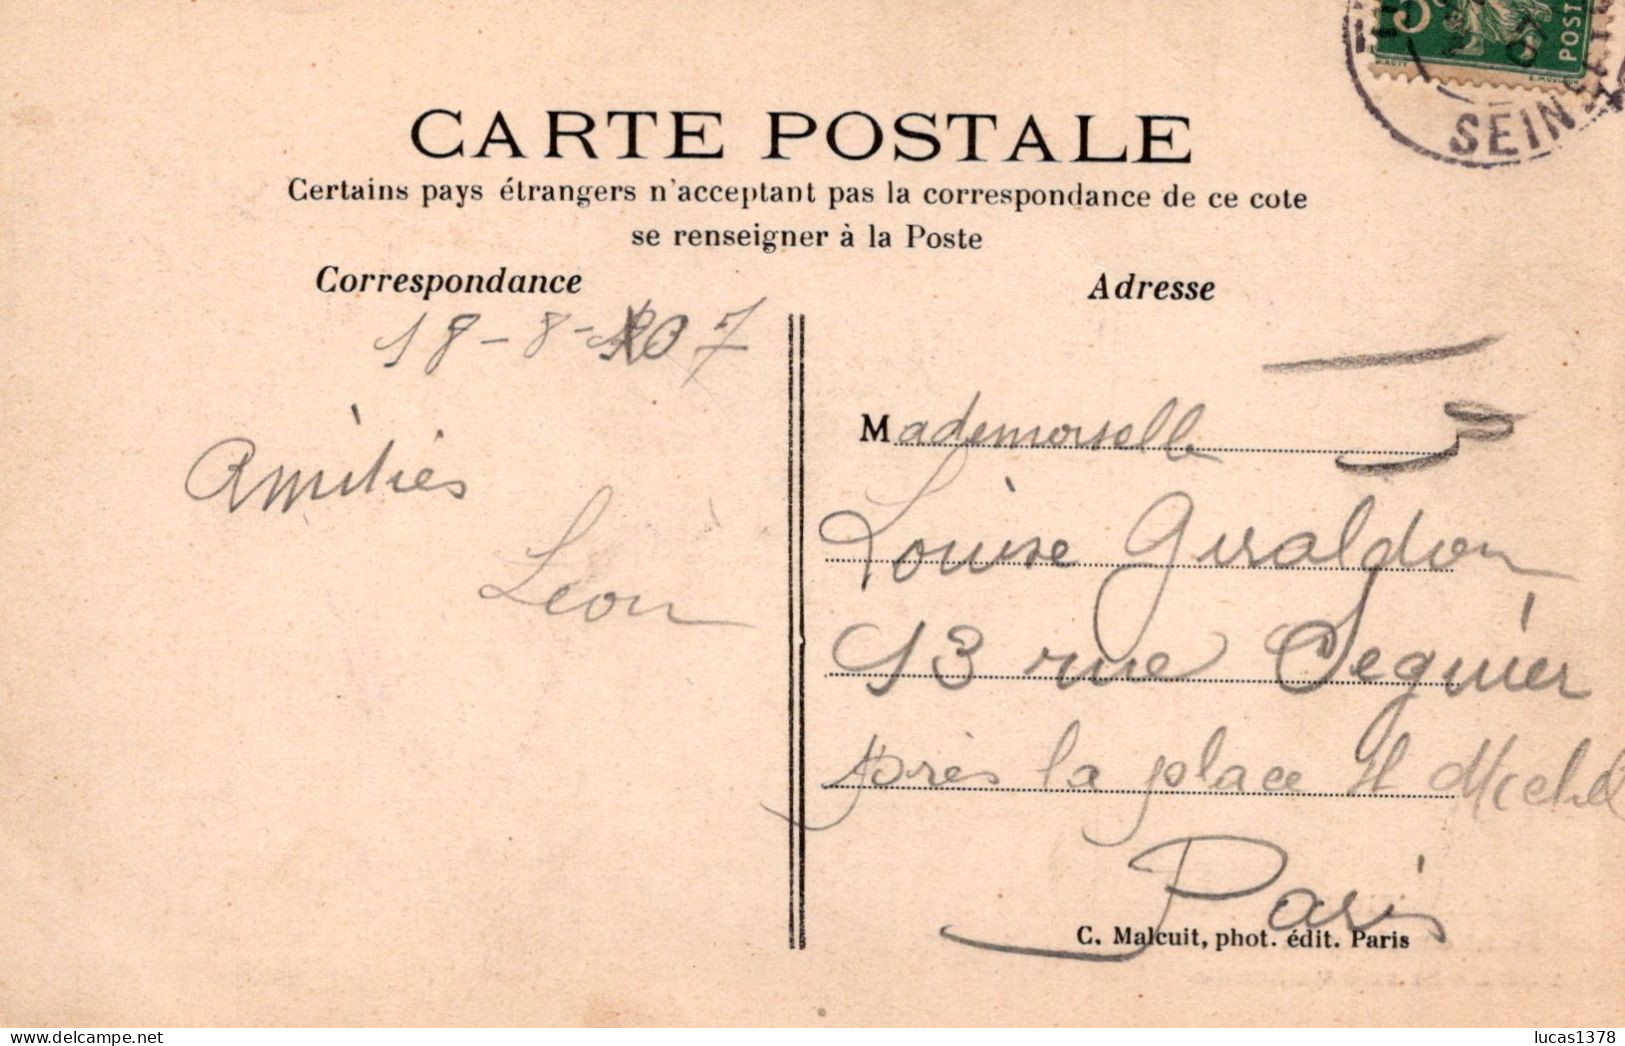 5c
POSTES
SEINE
CARTE POSTALE
Certains pays étrangers n'acceptant pas la correspondance de ce cote
se renseigner à la Poste
Correspondance
Adresse
18-8-1907
Mademoiselle
Amitiés
Louise Giraldon
Léon
13 rue Seguier
près la place St Michel
Paris
C. Malcuit, phot. édit. Paris
lucas1378